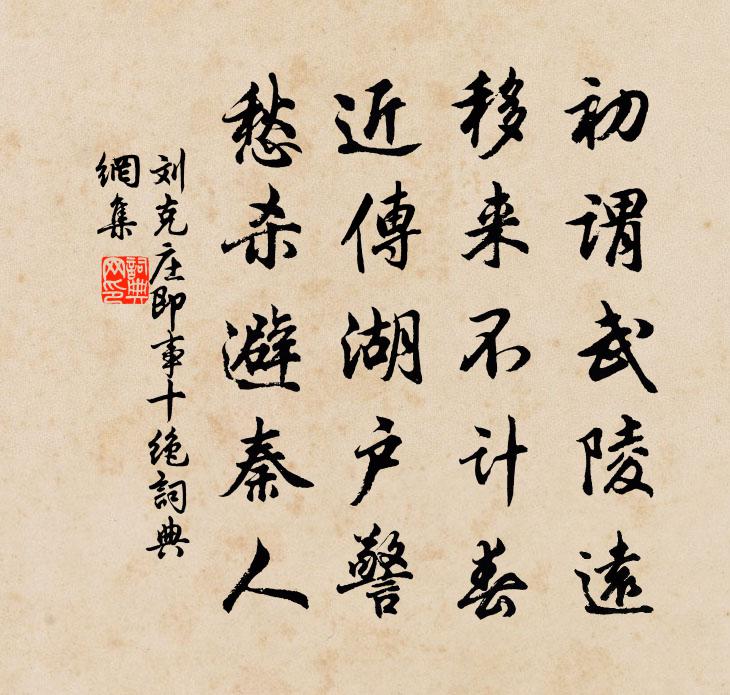 初谓武陵遠
移来不计春
近傳湖户警
愁杀避秦人
刘克庄即事十绝詞典
網集
詞典
网印